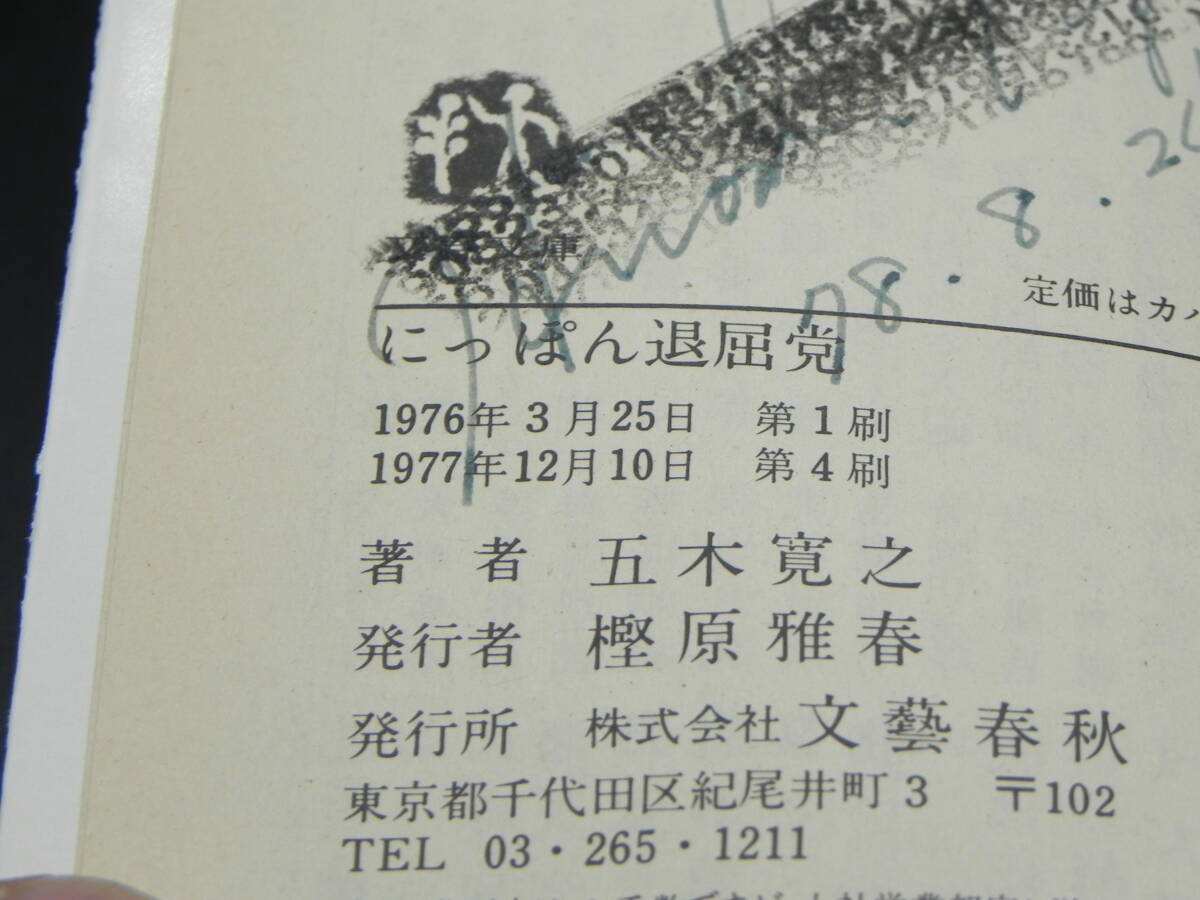 文春文庫
78.8.2
定価はカバ
にっぽん退屈党
1976年3月25日 第1刷
1977年12月10日 第4刷
著者 五木寛之
発行者 樫原雅春
発行所 株式会社 文藝春秋
東京都千代田区紀尾井町3 〒102
TEL 03・265・1211